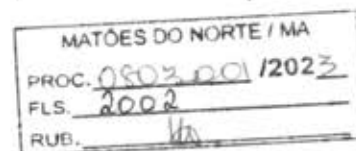 MATÕES DO NORTE / MA
PROC. 0503001 /2023
FLS. 2002
RUB.